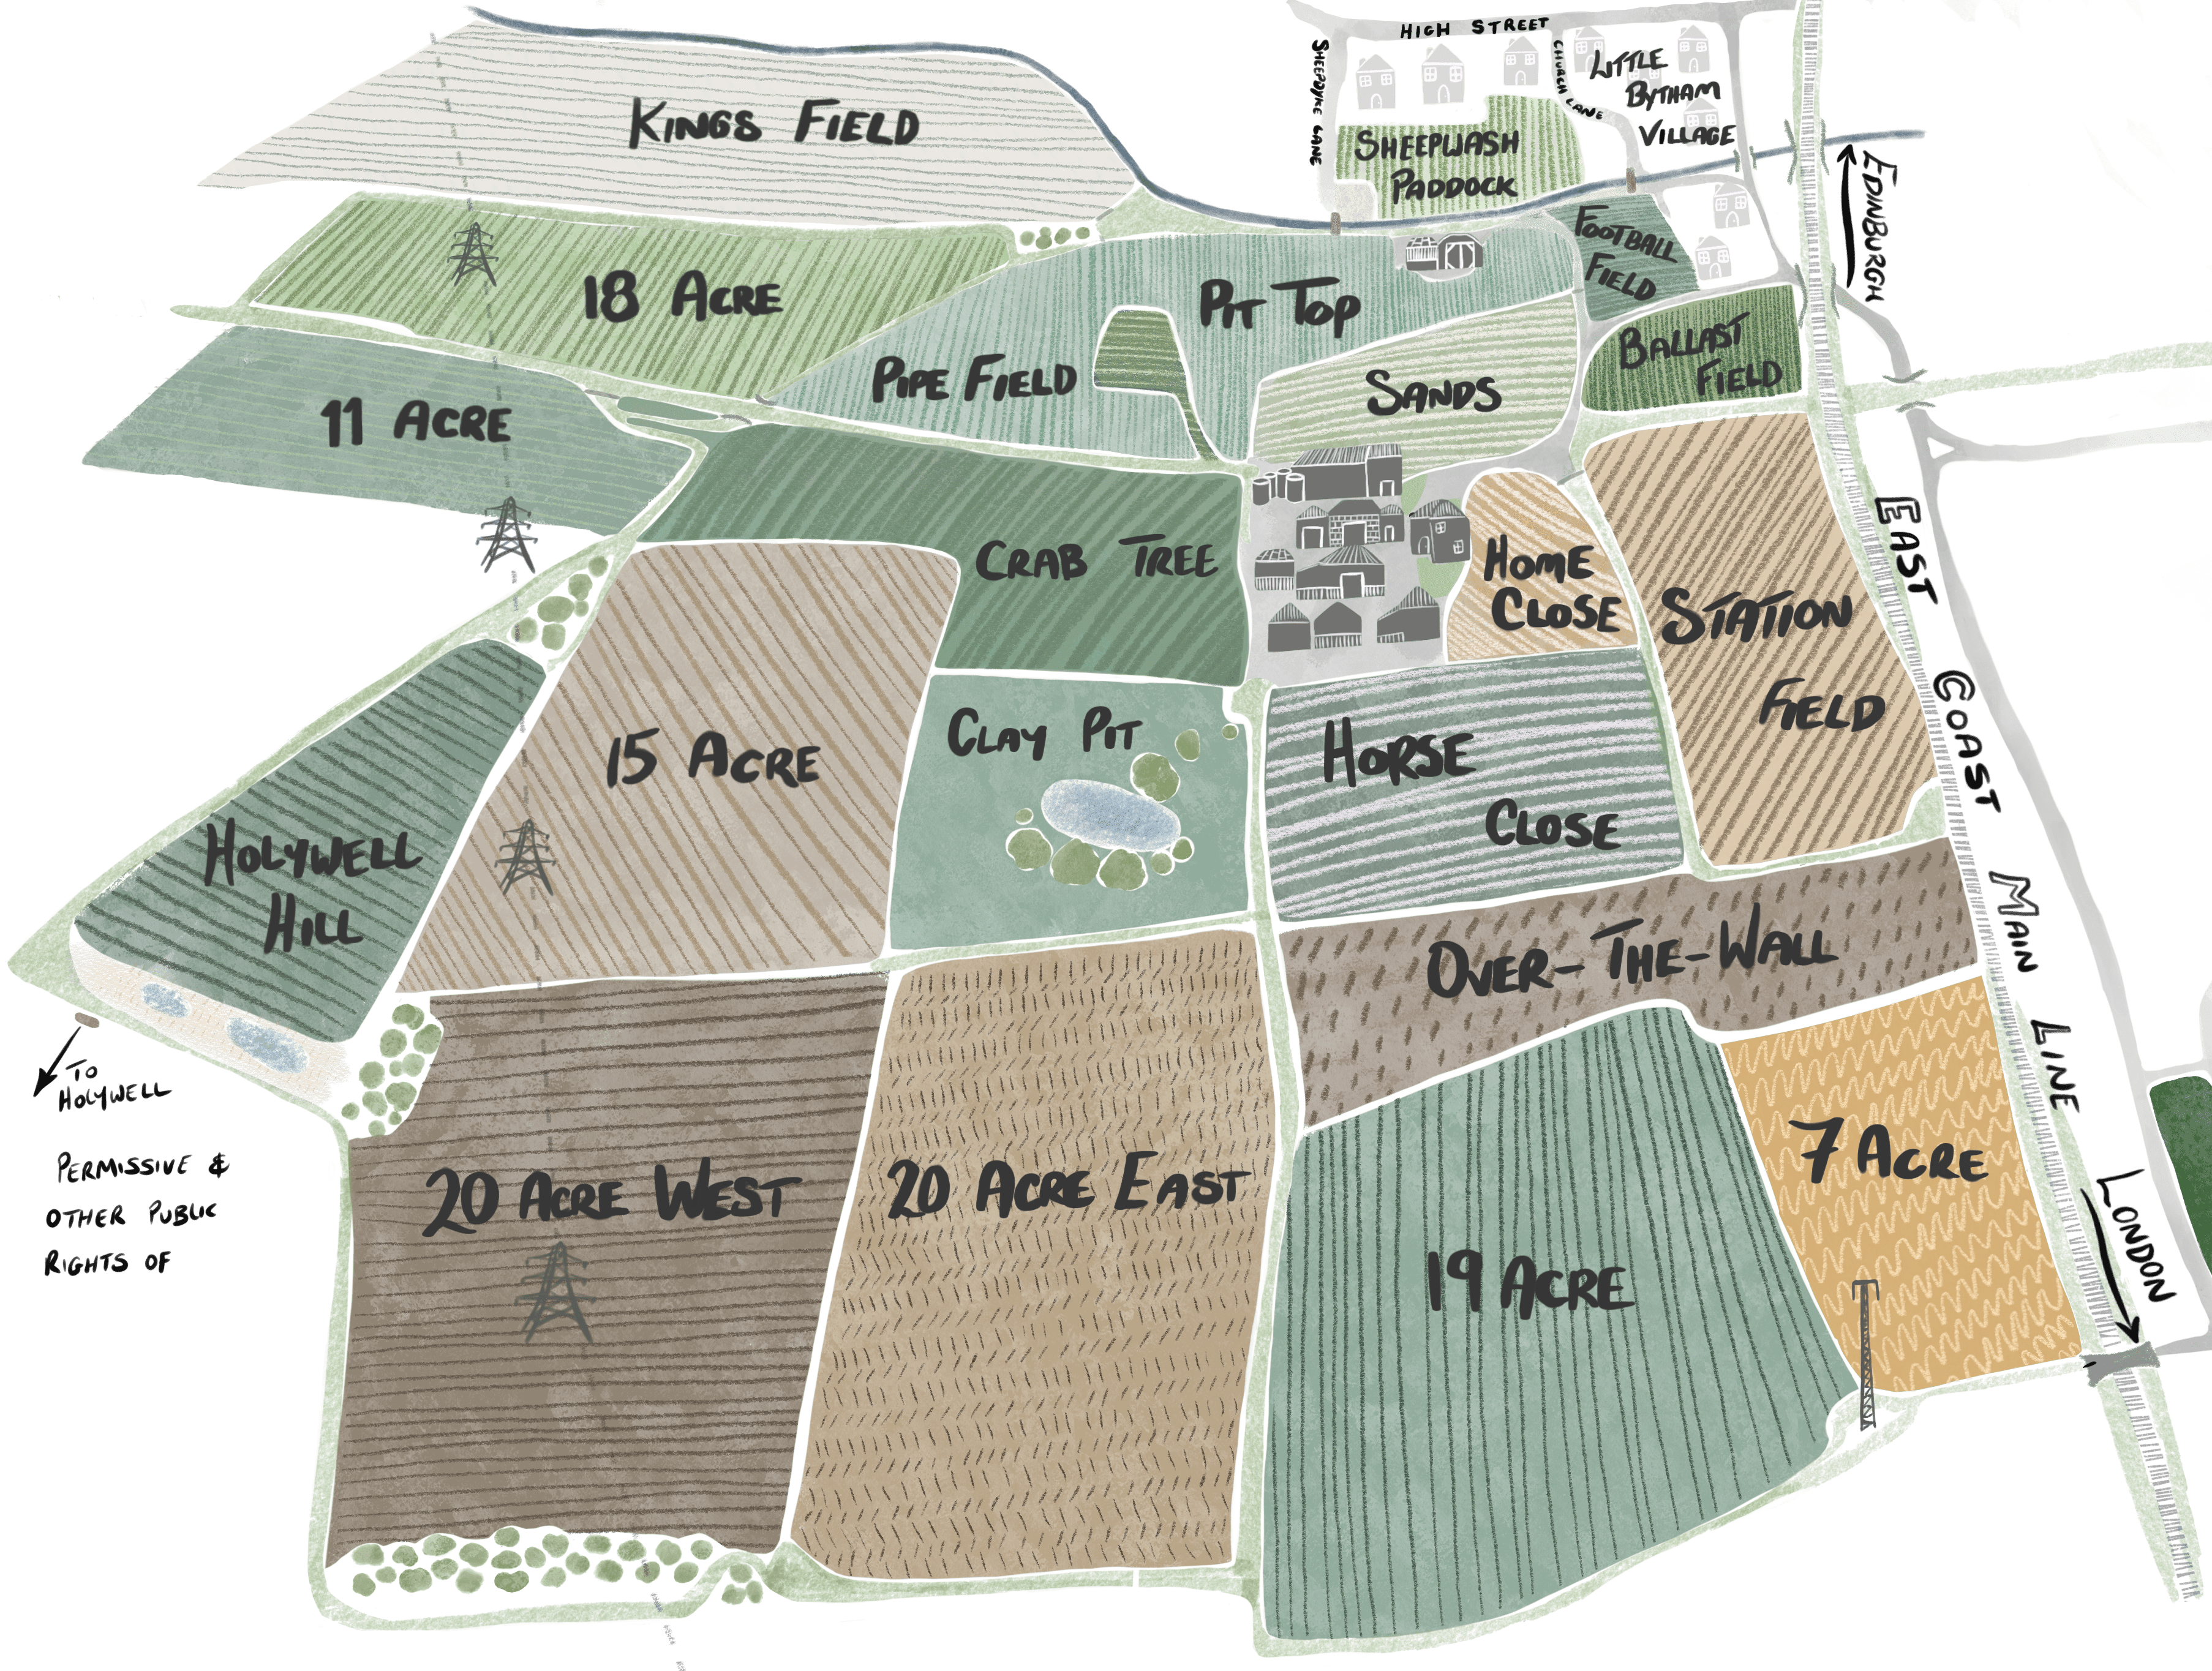 HIGH STREET
SHEEPDYKE LANE
CHURCH LANE
LITTLE
BYTHAM
VILLAGE
KINGS FIELD
SHEEPWASH
PADDOCK
EDINBURGH
FOOTBALL
FIELD
18 ACRE
PIT TOP
BALLAST
FIELD
PIPE FIELD
SANDS
11 ACRE
CRAB TREE
HOME
CLOSE
STATION
FIELD
EAST COAST MAIN LINE
15 ACRE
CLAY PIT
HORSE
CLOSE
HOLYWELL
HILL
OVER-THE-WALL
TO
HOLYWELL
PERMISSIVE &
OTHER PUBLIC
RIGHTS OF
20 ACRE WEST
20 ACRE EAST
7 ACRE
19 ACRE
LONDON